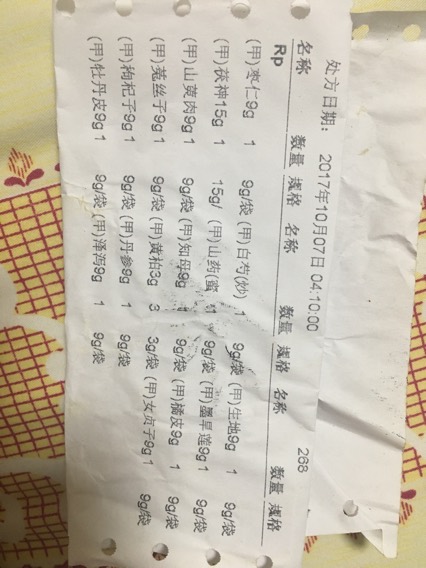 处方日期： 2017年10月07日 04:10:00 268
名称 数量 规格 名称 数量 规格 名称 数量 规格
Rp
(甲)枣仁9g 1 9g/袋 (甲)白芍(炒) 1 9g/袋 (甲)生地9g 1 9g/袋
(甲)茯神15g 1 15g/ (甲)山药(蜜 1 9g/袋 (甲)墨旱莲9g 1 9g/袋
(甲)山萸肉9g 1 9g/袋 (甲)知母9g 1 9g/袋 (甲)橘皮9g 1 9g/袋
(甲)菟丝子9g 1 9g/袋 (甲)黄柏3g 3 3g/袋 (甲)女贞子9g 1 9g/袋
(甲)枸杞子9g 1 9g/袋 (甲)丹参9g 1 9g/袋
(甲)牡丹皮9g 1 9g/袋 (甲)泽泻9g 1 9g/袋